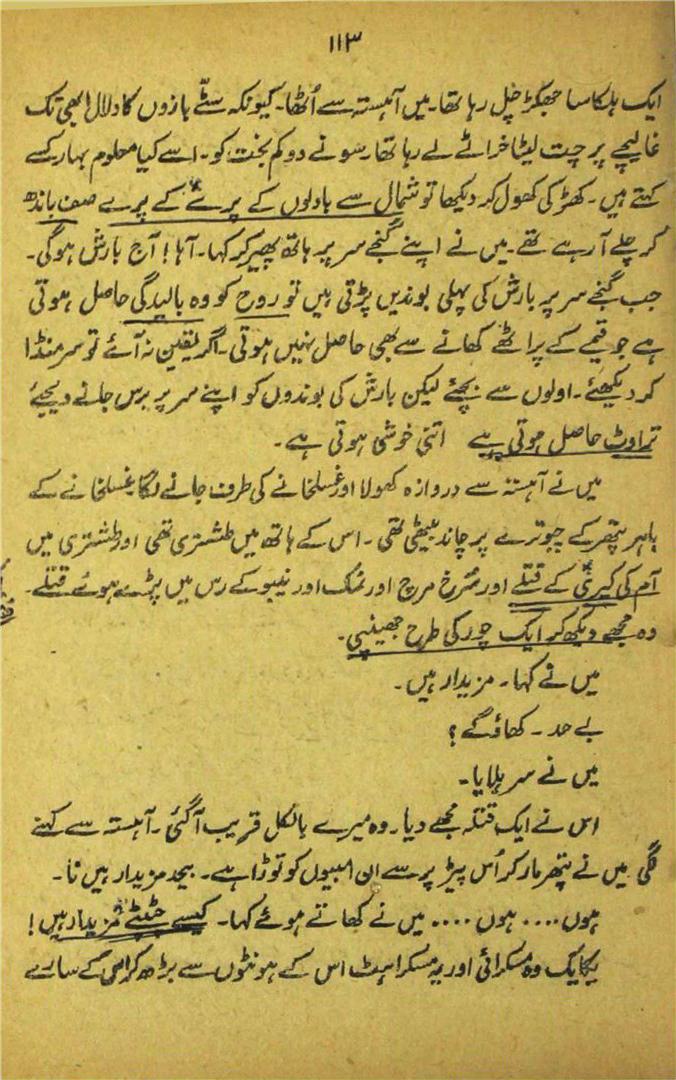 ۱۱۳
ایک ہلکا سا جھکڑ چل رہا تھا۔ میں آہستہ سے اُٹھا۔ کیونکہ سٹے بازوں کا دلال ابھی تک
غالیچے پر چت لیٹا خراٹے لے رہا تھا۔ سونے دو کم بخت کو۔ اسے کیا معلوم بہار کسے
کہتے ہیں۔ کھڑکی کھول کر دیکھا تو شمال سے بادلوں کے پرے کے پرے صف باندھ
کر چلے آ رہے تھے۔ میں نے اپنے گنجے سر پر ہاتھ پھیر کر کہا۔ آہا! آج بارش ہوگی۔
جب گنجے سر پر بارش کی پہلی بوندیں پڑتی ہیں تو روح کو وہ بالیدگی حاصل ہوتی
ہے جو قیمے کے پراٹھے کھانے سے بھی حاصل نہیں ہوتی۔ اگر یقین نہ آئے تو سر منڈا
کر دیکھئے۔ اولوں سے بچئے لیکن بارش کی بوندوں کو اپنے سر پر برس جانے دیجیے
تراوٹ حاصل ہوتی ہے اتنی خوشی ہوتی ہے۔
میں نے آہستہ سے دروازہ کھولا اور غسلخانے کی طرف جانے لگا۔ غسلخانے کے
باہر پتھر کے چبوترے پر چاند بیٹھی تھی۔ اس کے ہاتھ میں طشتری تھی اور طشتری میں
آم کی کیری کے قتلے اور سُرخ مرچ اور نمک اور نیبو کے رس میں پڑے ہوئے قتلے۔
وہ مجھے دیکھ کر ایک چور کی طرح جھینپی۔
میں نے کہا۔ مزیدار ہیں۔
بے حد۔ کھاؤ گے؟
میں نے سر ہلایا۔
اس نے ایک قتلہ مجھے دیا۔ وہ میرے بالکل قریب آ گئی۔ آہستہ سے کہنے
لگی میں نے پتھر مار کر اُس پیڑ پر سے ان امبیوں کو توڑا ہے۔ بیحد مزیدار ہیں نا۔
ہوں.... ہوں.... میں نے کھاتے ہوئے کہا۔ کیسے چٹپٹے مزیدار ہیں!
یکایک وہ مسکرائی اور یہ مسکراہٹ اس کے ہونٹوں سے بڑھ کر اس کے سارے